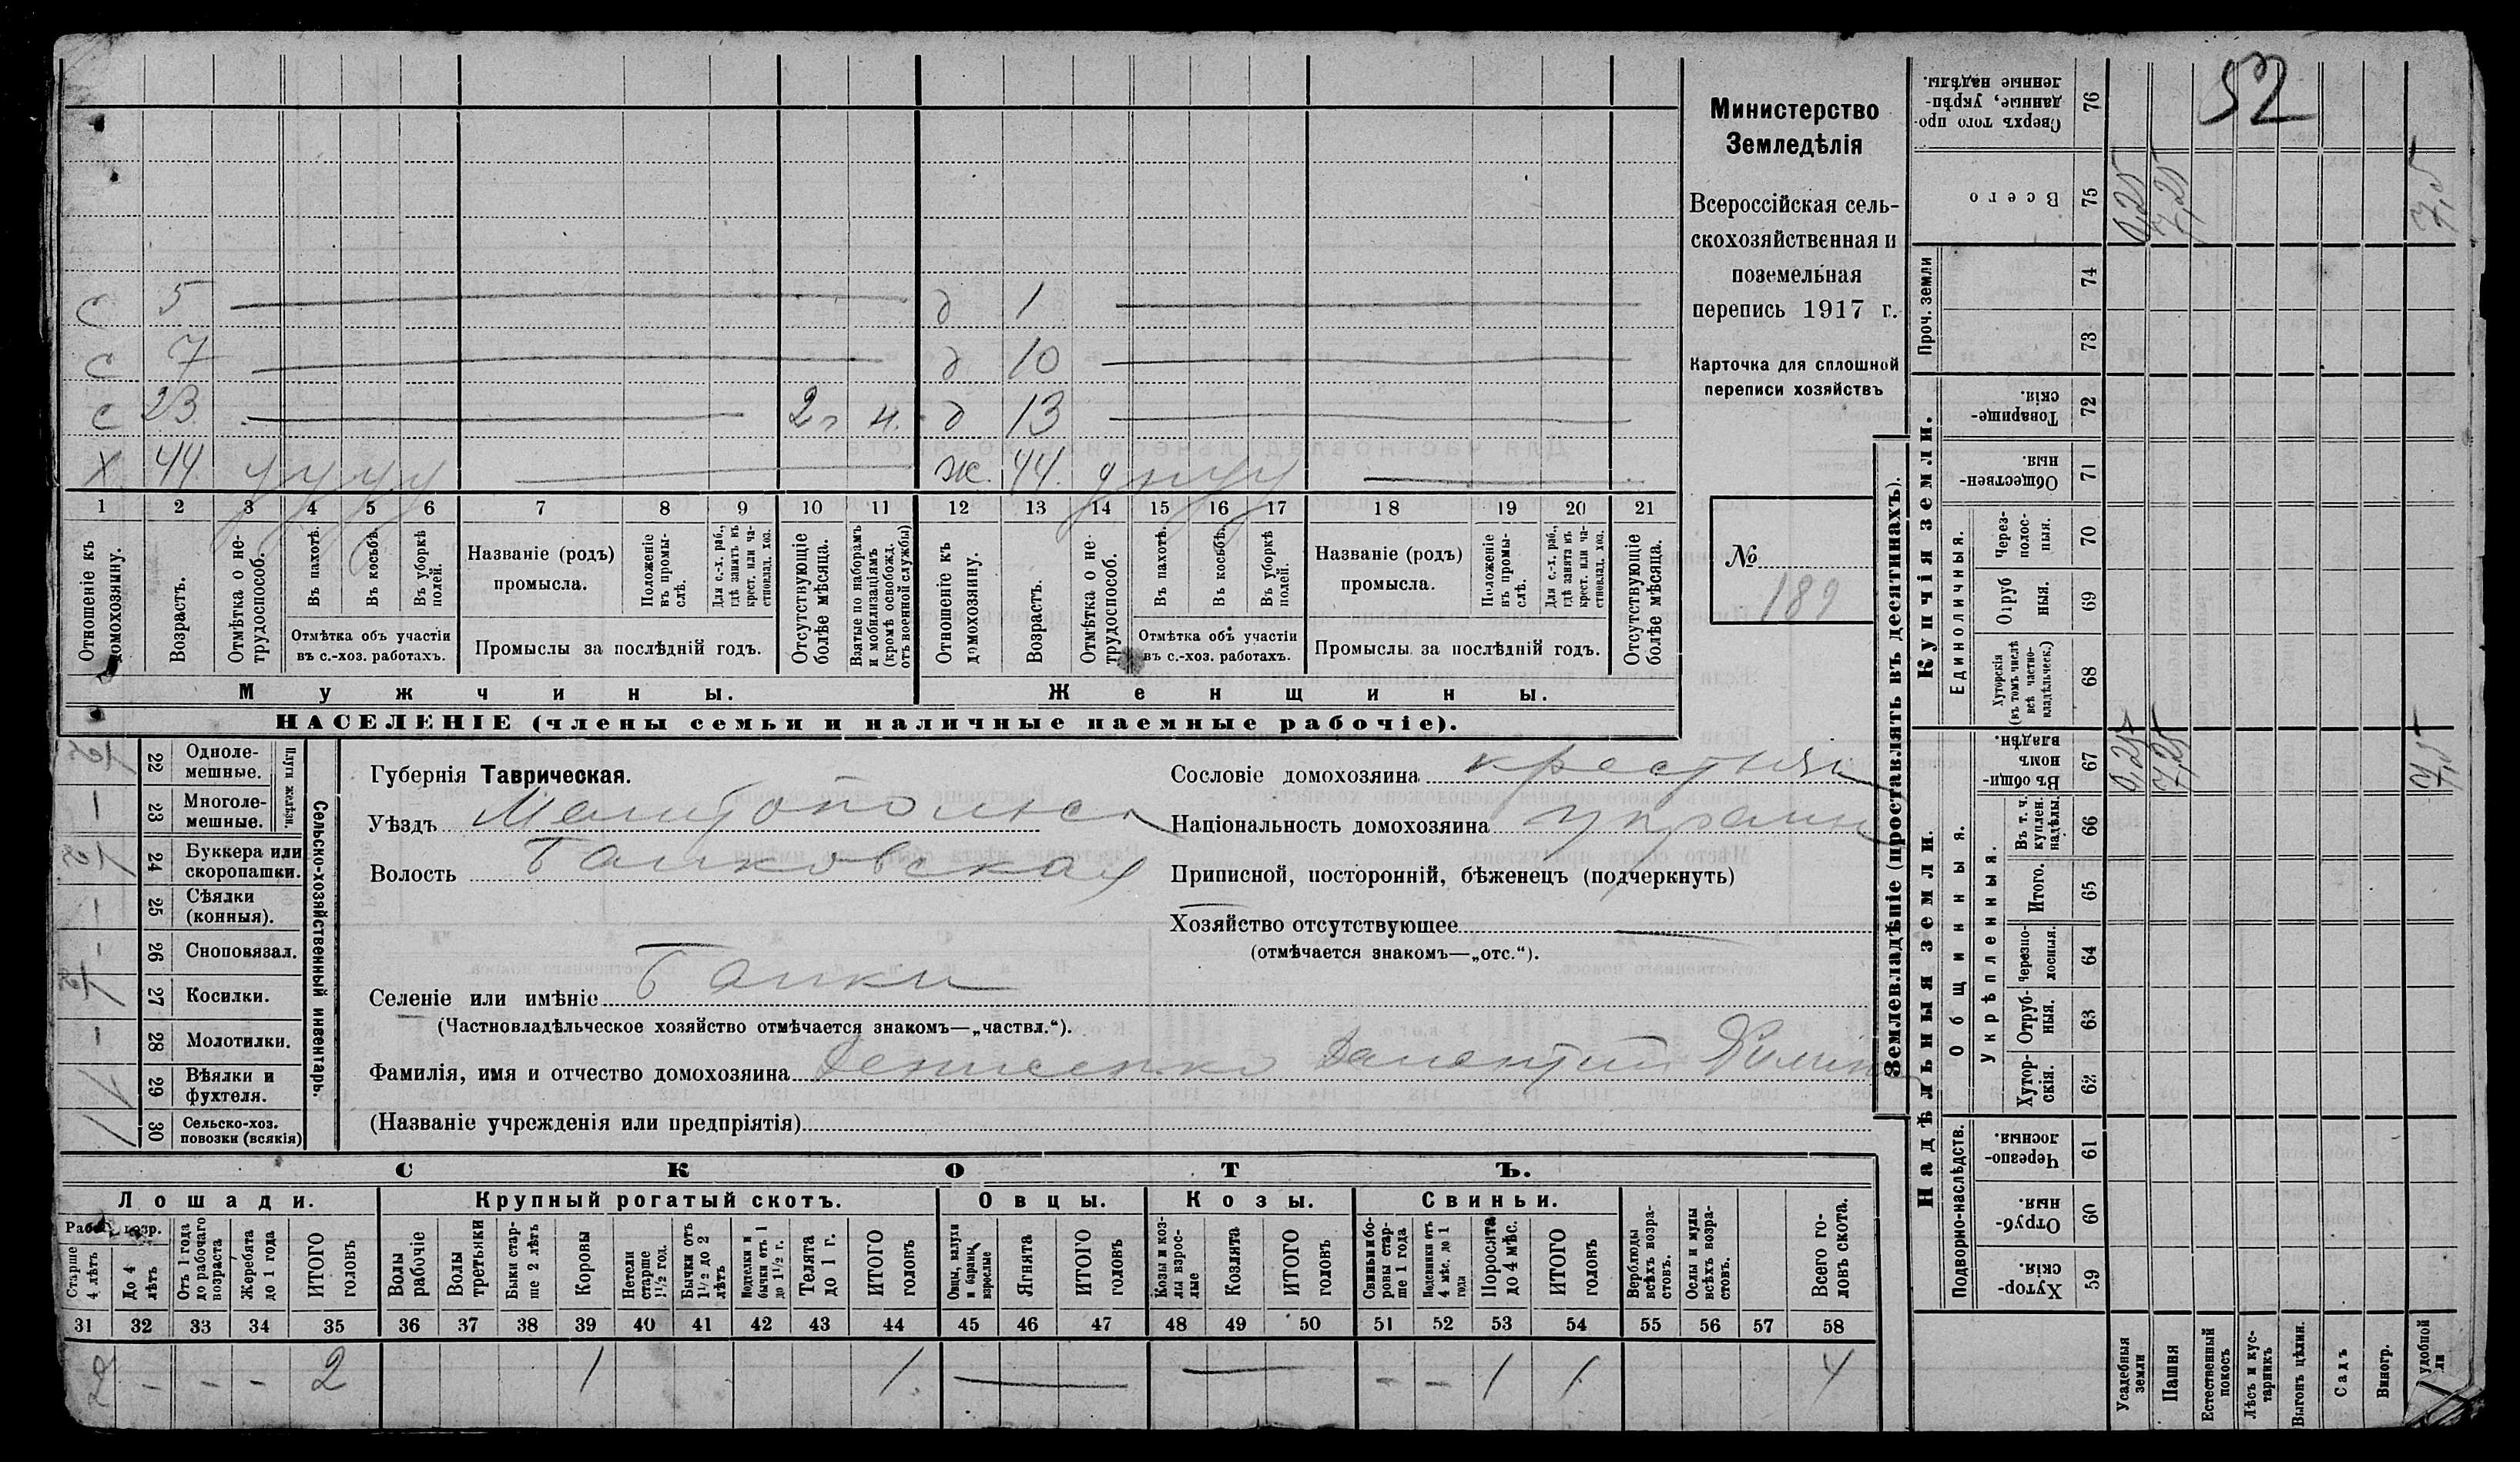 52
Министерство
Земледѣлія
Всероссійская сель-
скохозяйственная и
поземельная
перепись 1917 г.
Карточка для сплошной
переписи хозяйствъ
№
189
с 5 д 1
с 7 д 10
с 23 2 г н. д 13
х 44 у у у у ж. 44. у н у у
1 2 3 4 5 6 7 8 9 10 11 12 13 14 15 16 17 18 19 20 21
Отношеніе къ домохозяину.
Возрастъ.
Отмѣтка о не-трудоспособ.
Въ пахотѣ.
Въ косьбѣ.
Въ уборкѣ полей.
Отмѣтка объ участіи
въ с.-хоз. работахъ.
Названіе (родъ)
промысла.
Положеніе въ промы-слѣ.
Для с.-х. раб., гдѣ занятъ въ крест. или ча-стновлад. хоз.
Промыслы за послѣдній годъ.
Отсутствующіе болѣе мѣсяца.
Взятые по наборамъ и мобилизаціямъ (кромѣ освобожд. отъ военной службы)
Отношеніе къ домохозяину.
Возрастъ.
Отмѣтка о не трудоспособ.
Въ пахотѣ.
Въ косьбѣ.
Въ уборкѣ полей.
Отмѣтка объ участіи
въ с.-хоз. работахъ.
Названіе (родъ)
промысла.
Положеніе въ промы-слѣ.
Для с.-х. раб., гдѣ занята въ крест. или ча-стновлад. хоз.
Промыслы за послѣдній годъ.
Отсутствующіе болѣе мѣсяца.
Мужчины.
Женщины.
НАСЕЛЕНІЕ (члены семьи и наличные наемные рабочіе).
Сельско-хозяйственный инвентарь.
Плуги желѣзн.
22 Одноле-мешные.
23 Многоле-мешные.
24 Буккера или скоропашки.
25 Сѣялки (конныя).
26 Сноповязал.
27 Косилки.
28 Молотилки.
29 Вѣялки и фухтеля.
30 Сельско-хоз. повозки (всякія)
Губернія Таврическая.
Уѣздъ Мелитопольск
Волость Балковская
Селеніе или имѣніе Балки
(Частновладѣльческое хозяйство отмѣчается знакомъ—„частвл.“).
Сословіе домохозяина крестьян
Національность домохозяина украин
Приписной, посторонній, бѣженецъ (подчеркнуть)
Хозяйство отсутствующее
(отмѣчается знакомъ—„отс.“).
Фамилія, имя и отчество домохозяина Денисенко
(Названіе учрежденія или предпріятія)
СКОТЪ.
Лошади. Крупный рогатый скотъ. Овцы. Козы. Свиньи.
Рабоч. возр.
Старше 4 лѣтъ
До 4 лѣтъ
Отъ 1 года до рабочаго возраста
Жеребята до 1 года
ИТОГО головъ
Волы рабочіе
Волы третьяки
Быки стар-ше 2 лѣтъ
Коровы
Нетели старше 1½ год.
Бычки отъ 1½ до 2 лѣтъ
Подтелки и бычки отъ 1 до 1½ г.
Телята до 1 г.
ИТОГО головъ
Овцы, валухи и бараны взрослые
Ягнята
ИТОГО головъ
Козы и коз-лы взрос-лые
Козлята
ИТОГО головъ
Свиньи и бо-ровы стар-ше 1 года
Подсвинки отъ 4 мѣс. до 1 года
Поросята до 4 мѣс.
ИТОГО головъ
Верблюды всѣхъ возра-стовъ.
Ослы и мулы всѣхъ возра-стовъ.
Всего го-ловъ скота.
31 32 33 34 35 36 37 38 39 40 41 42 43 44 45 46 47 48 49 50 51 52 53 54 55 56 57 58
2 – – – 2 1 1. — — – – 1 1 4
Землевладѣніе (проставлять въ десятинахъ).
Купчія земли.
Надѣльныя земли.
Сверхъ того про-данные, укрѣп-ленные надѣлы. 76
Всего 75 0,25 7,25 7,5
Проч. земли
74
73
Товарище-скія. 72
Обществен-ныя. 71
Единоличныя.
Через-полос-ныя. 70
Отруб ныя. 69
Хуторскія (въ томъ числѣ всѣ частно-владѣльческ.) 68
Общинныя.
Въ общи-номъ владѣн. 67 0,25 7,25 7,5
Укрѣпленныя.
Въ т. ч. куплен. надѣлы. 66
Итого. 65
Черезпо-лосныя. 64
Отруб-ныя. 63
Хутор-скія. 62
Подворно-наслѣдств.
Черезпо-лосныя. 61
Отруб-ныя. 60
Хутор-скія. 59
Усадебныя земли
Пашня
Естественный покосъ
Лѣсъ и кус-тарникъ
Выгонъ цѣлин.
Садъ
Виногр.
удобной